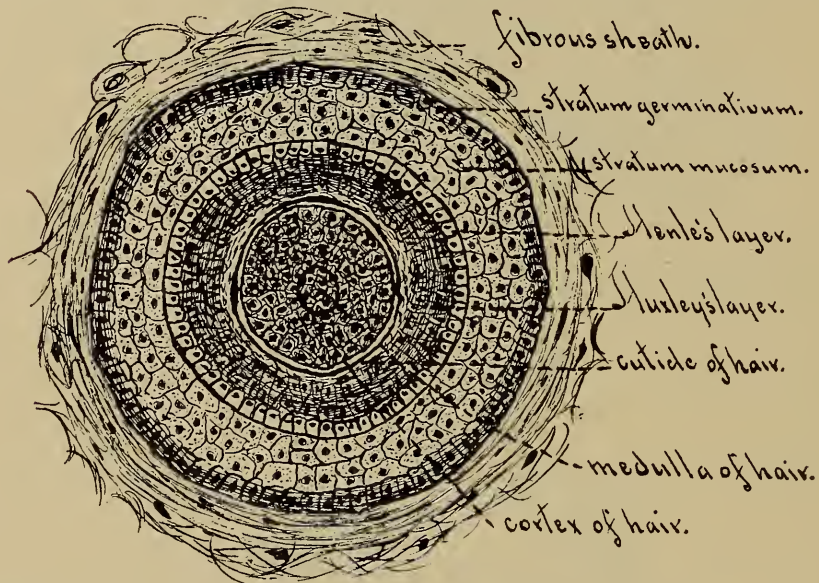 fibrous sheath.
stratum germinativum.
stratum mucosum.
Henle's layer.
Huxley's layer.
cuticle of hair.
medulla of hair.
cortex of hair.